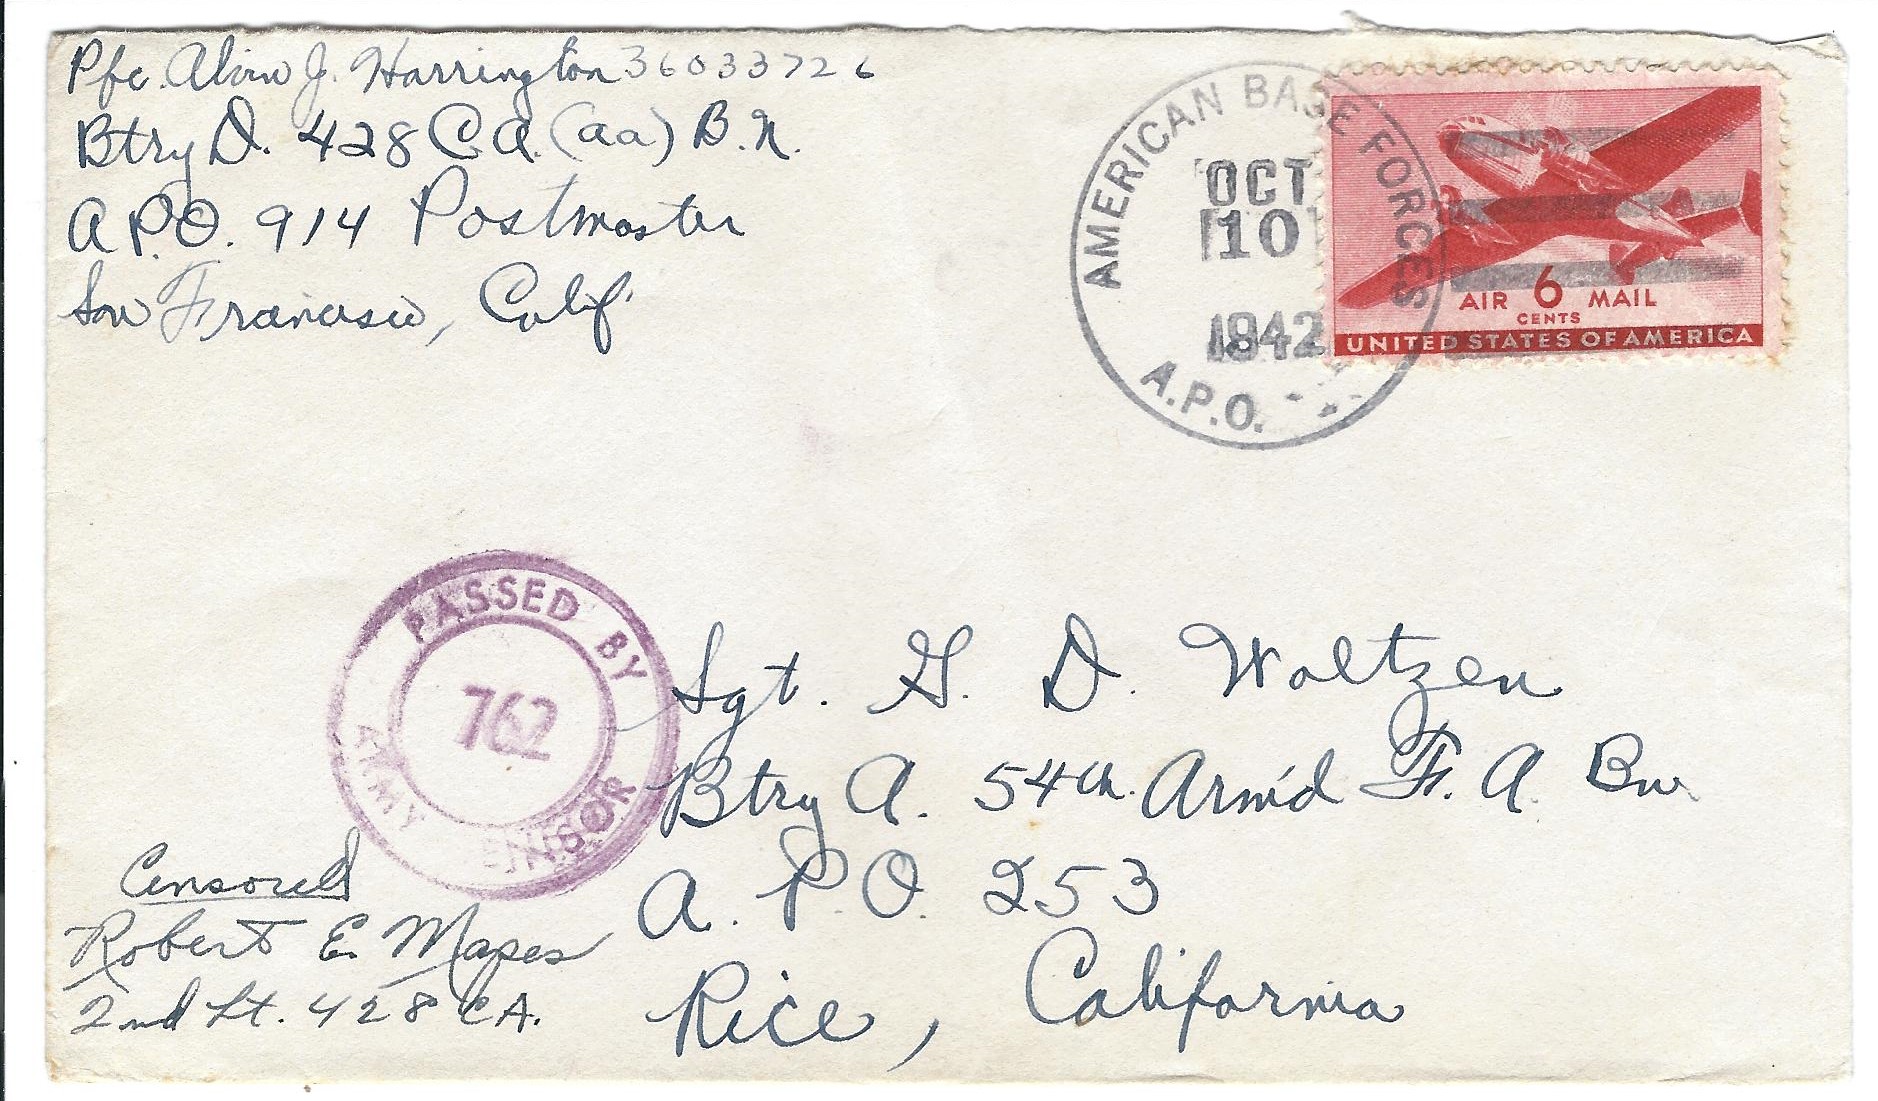 Pfc. Alvin J. Harrington 36033726
Btry D. 428 C.A. (aa) B.N.
A.P.O. 914 Postmaster
San Francisco, Calif
AMERICAN BASE FORCES
OCT
10
1942
A.P.O.
AIR 6 MAIL
CENTS
UNITED STATES OF AMERICA
PASSED BY
762
ARMY CENSOR
Sgt. G. D. Woltzen
Btry A. 54th Arm'd F. A. Bn.
A. P. O. 253
Rice, California
Censored
Robert E. Mapes
2nd Lt. 428 CA.